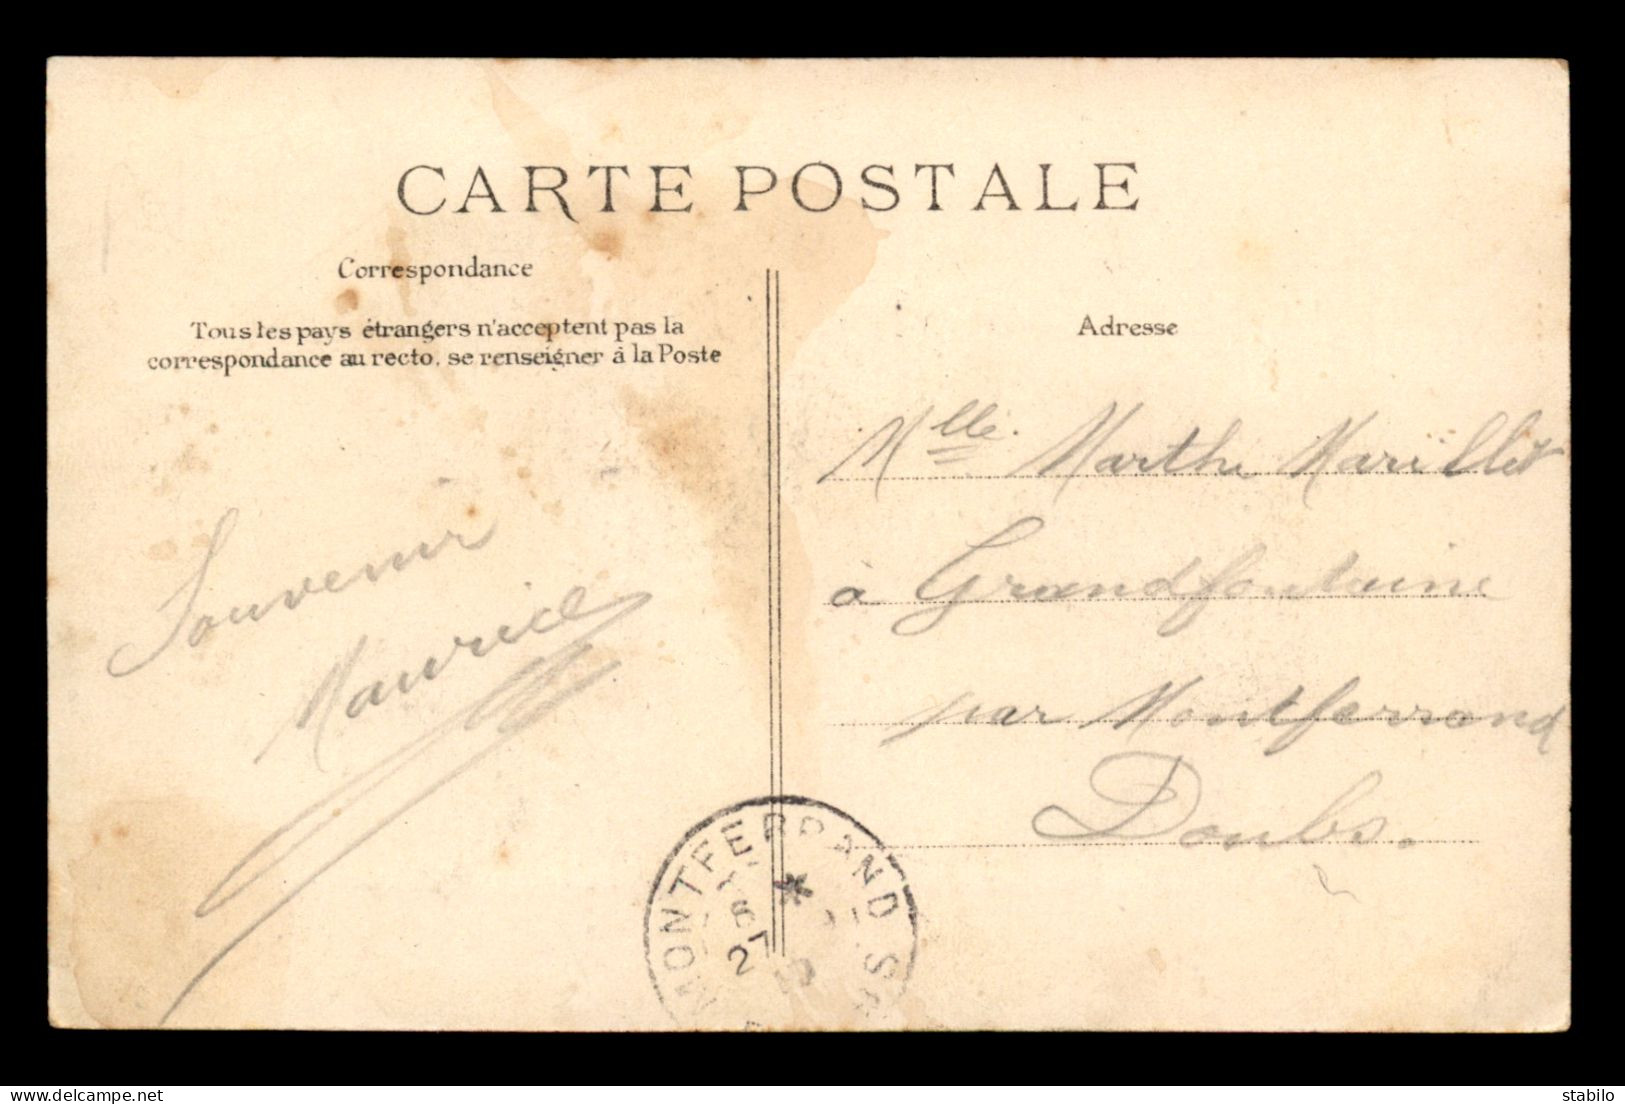 CARTE POSTALE
Correspondance
Tous les pays étrangers n'acceptent pas la
correspondance au recto, se renseigner à la Poste
Souvenir
Maurice
Adresse
Mlle. Marthe Marillet
à Grandfontaine
par Montferrand
Doubs.
MONTFERRAND
delcampe.net
stabilo